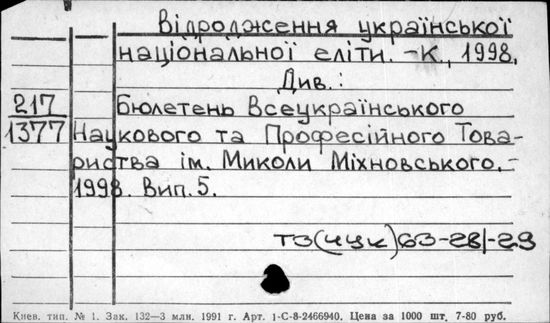 Відродження української
національної еліти. -К., 1998.
Див.:
217
1377
Бюлетень Всеукраїнського
Наукового та Професійного Това-
риства ім. Миколи Міхновського.-
1998. Вип. 5.
Т3(4УК)63-28/-29
Киев. тип. № 1. Зак. 132—3 млн. 1991 г. Арт. 1-С-8-2466940. Цена за 1000 шт. 7-80 руб.